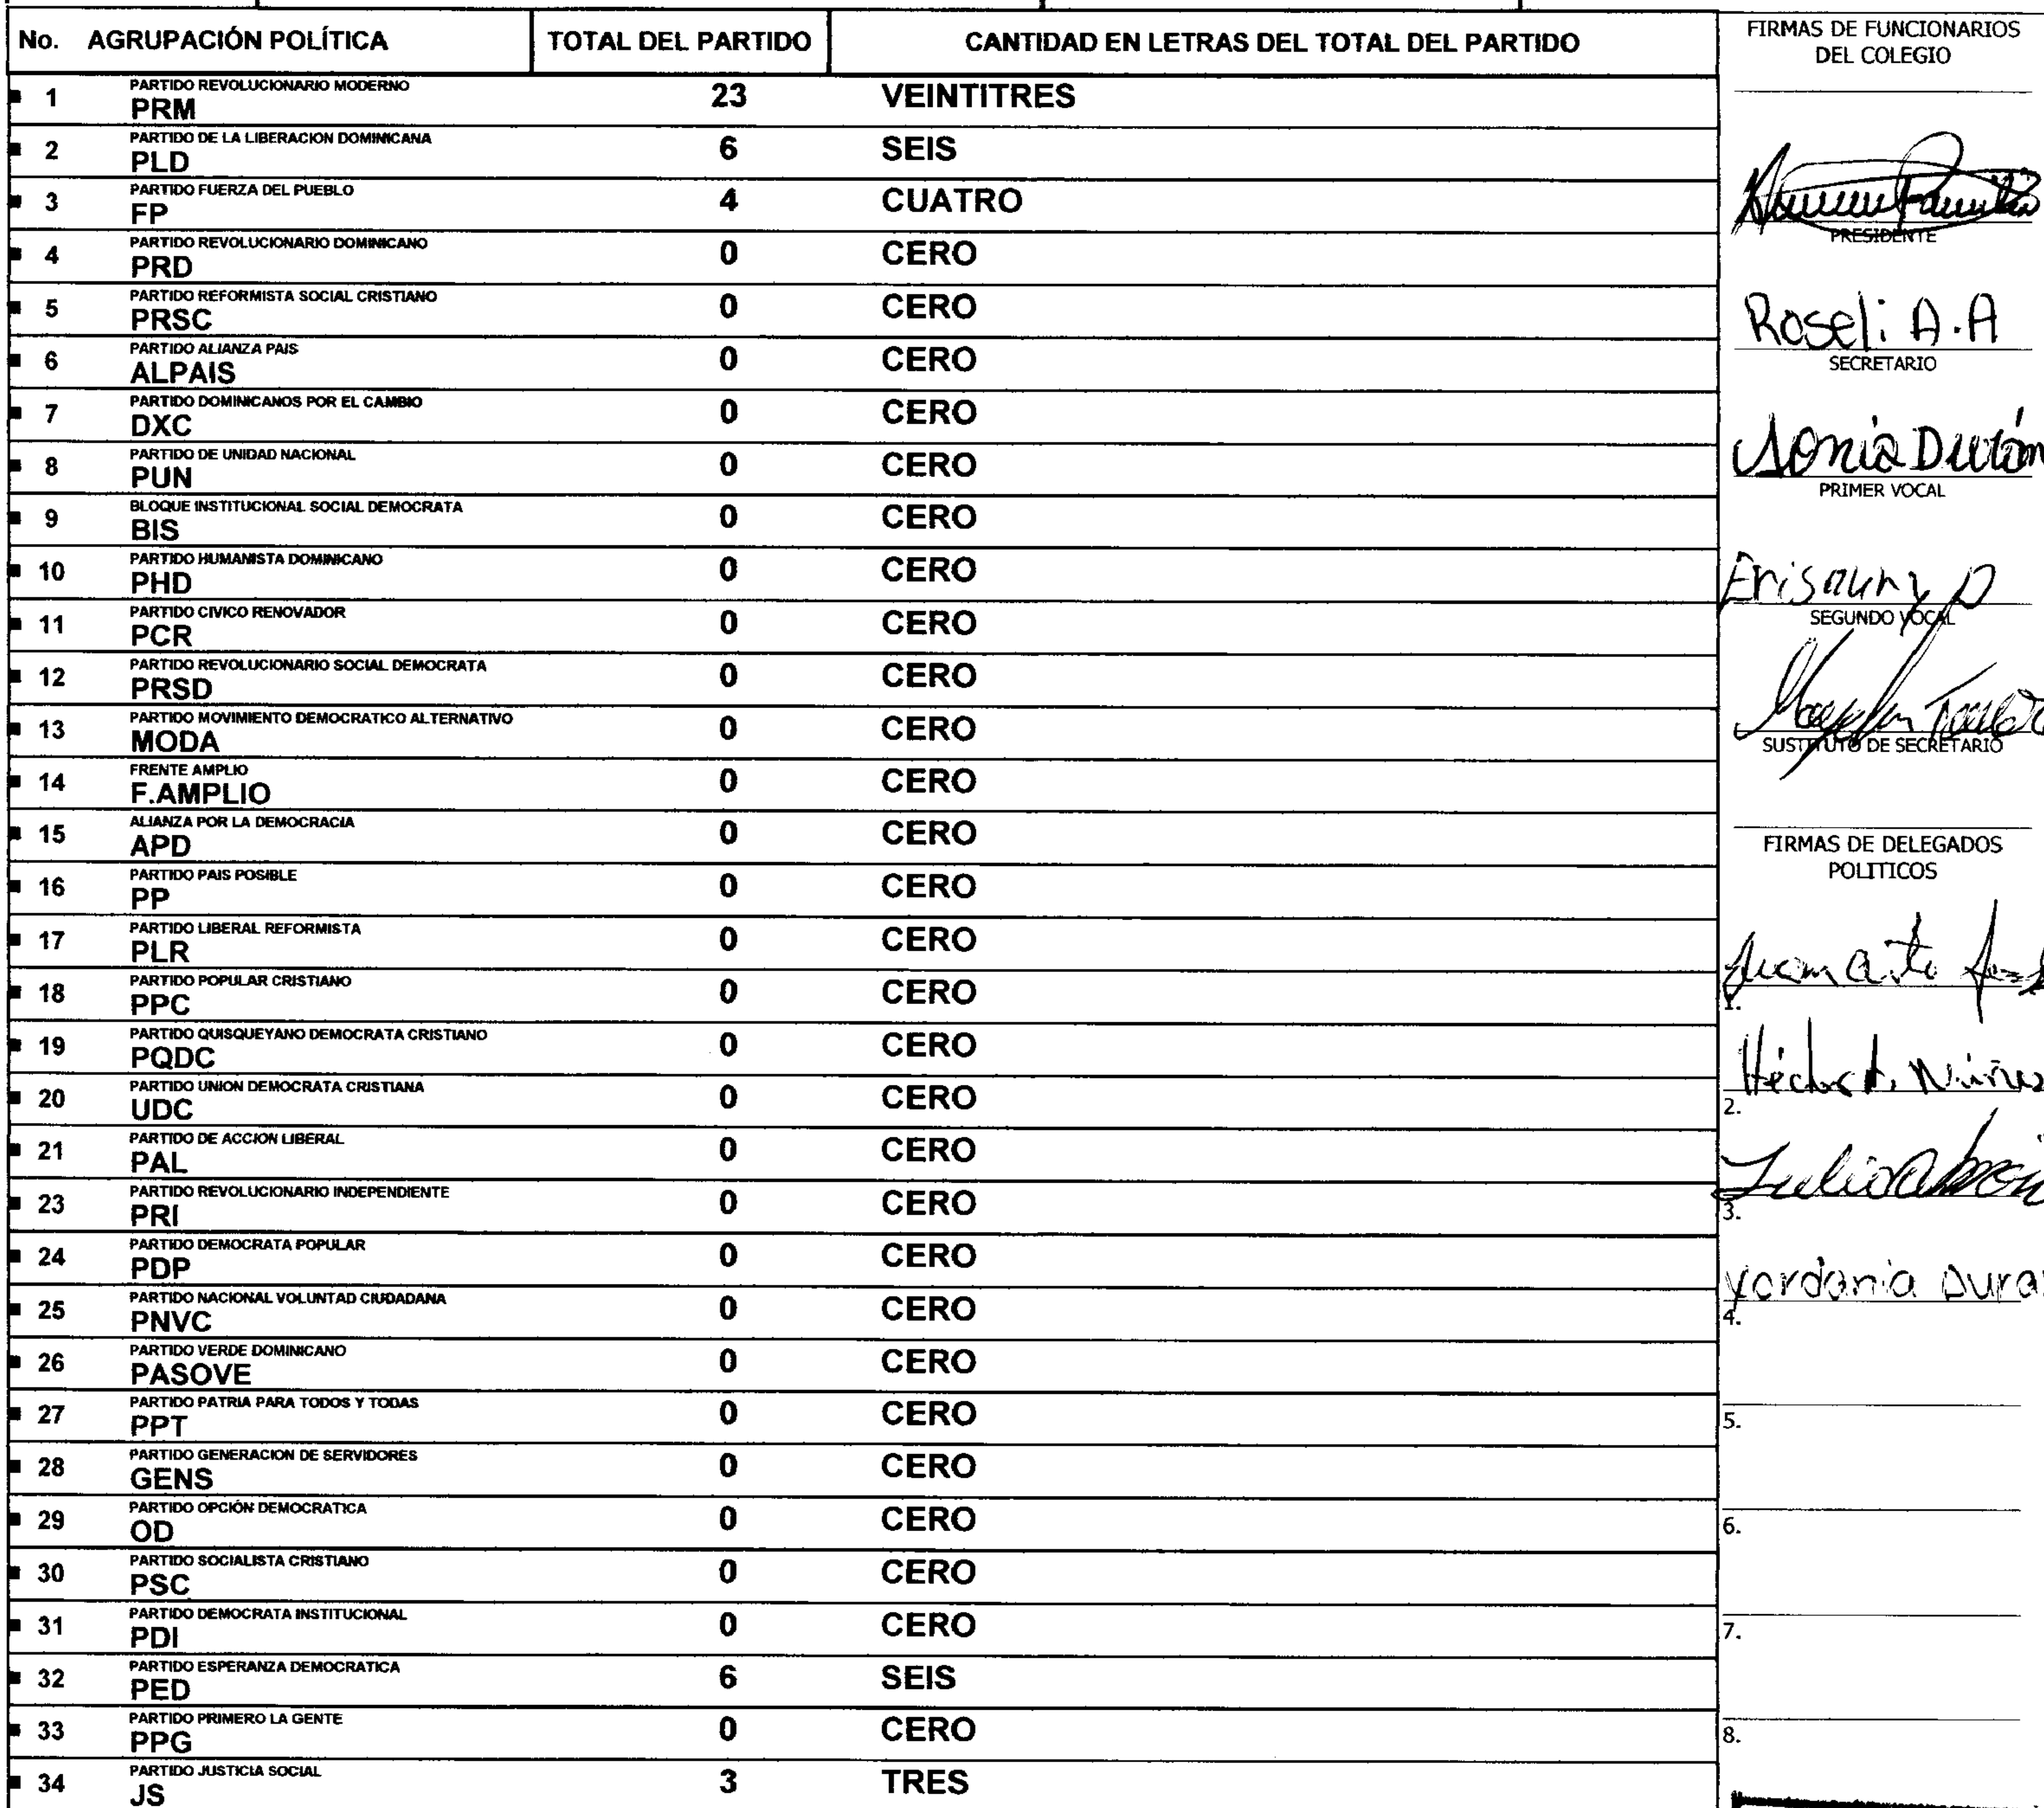 No. AGRUPACIÓN POLÍTICA TOTAL DEL PARTIDO CANTIDAD EN LETRAS DEL TOTAL DEL PARTIDO
PARTIDO REVOLUCIONARIO MODERNO
1 PRM 23 VEINTITRES
PARTIDO DE LA LIBERACION DOMINICANA
2 PLD 6 SEIS
PARTIDO FUERZA DEL PUEBLO
3 FP 4 CUATRO
PARTIDO REVOLUCIONARIO DOMINICANO
4 PRD 0 CERO
PARTIDO REFORMISTA SOCIAL CRISTIANO
5 PRSC 0 CERO
PARTIDO ALIANZA PAIS
6 ALPAIS 0 CERO
PARTIDO DOMINICANOS POR EL CAMBIO
7 DXC 0 CERO
PARTIDO DE UNIDAD NACIONAL
8 PUN 0 CERO
BLOQUE INSTITUCIONAL SOCIAL DEMOCRATA
9 BIS 0 CERO
PARTIDO HUMANISTA DOMINICANO
10 PHD 0 CERO
PARTIDO CIVICO RENOVADOR
11 PCR 0 CERO
PARTIDO REVOLUCIONARIO SOCIAL DEMOCRATA
12 PRSD 0 CERO
PARTIDO MOVIMIENTO DEMOCRATICO ALTERNATIVO
13 MODA 0 CERO
FRENTE AMPLIO
14 F.AMPLIO 0 CERO
ALIANZA POR LA DEMOCRACIA
15 APD 0 CERO
PARTIDO PAIS POSIBLE
16 PP 0 CERO
PARTIDO LIBERAL REFORMISTA
17 PLR 0 CERO
PARTIDO POPULAR CRISTIANO
18 PPC 0 CERO
PARTIDO QUISQUEYANO DEMOCRATA CRISTIANO
19 PQDC 0 CERO
PARTIDO UNION DEMOCRATA CRISTIANA
20 UDC 0 CERO
PARTIDO DE ACCION LIBERAL
21 PAL 0 CERO
PARTIDO REVOLUCIONARIO INDEPENDIENTE
23 PRI 0 CERO
PARTIDO DEMOCRATA POPULAR
24 PDP 0 CERO
PARTIDO NACIONAL VOLUNTAD CIUDADANA
25 PNVC 0 CERO
PARTIDO VERDE DOMINICANO
26 PASOVE 0 CERO
PARTIDO PATRIA PARA TODOS Y TODAS
27 PPT 0 CERO
PARTIDO GENERACION DE SERVIDORES
28 GENS 0 CERO
PARTIDO OPCIÓN DEMOCRATICA
29 OD 0 CERO
PARTIDO SOCIALISTA CRISTIANO
30 PSC 0 CERO
PARTIDO DEMOCRATA INSTITUCIONAL
31 PDI 0 CERO
PARTIDO ESPERANZA DEMOCRATICA
32 PED 6 SEIS
PARTIDO PRIMERO LA GENTE
33 PPG 0 CERO
PARTIDO JUSTICIA SOCIAL
34 JS 3 TRES
FIRMAS DE FUNCIONARIOS
DEL COLEGIO
PRESIDENTE
Roseli A.A
SECRETARIO
Sonia Durán
PRIMER VOCAL
Erisauny D
SEGUNDO VOCAL
SUSTITUTO DE SECRETARIO
FIRMAS DE DELEGADOS
POLITICOS
1.
Núñez
2.
Julio
3.
Yordania Dura
4.
5.
6.
7.
8.